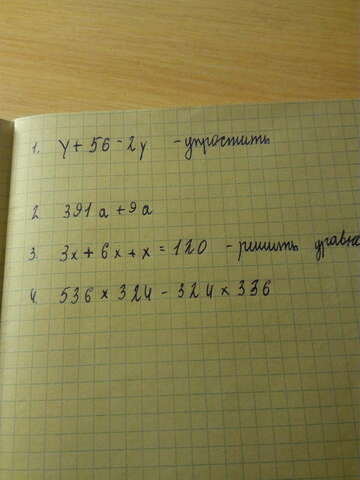 1. y + 56 - 2y - упростить
2. 391a + 9a
3. 3x + 6x + x = 120 - решить уравне
4. 536 × 324 - 324 × 336